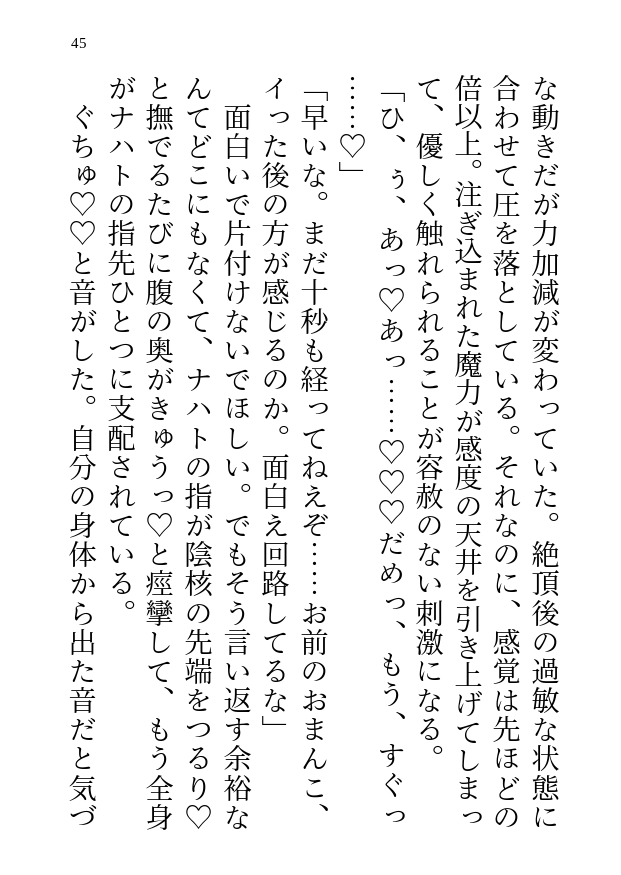 45
な動きだが力加減が変わっていた。絶頂後の過敏な状態に
合わせて圧を落としている。それなのに、感覚は先ほどの
倍以上。注ぎ込まれた魔力が感度の天井を引き上げてしまっ
て、優しく触れられることが容赦のない刺激になる。
「ひ、ぅ、あっ♡あっ……♡♡♡だめっ、もう、すぐっ
……♡」
「早いな。まだ十秒も経ってねえぞ……お前のおまんこ、
イった後の方が感じるのか。面白え回路してるな」
　面白いで片付けないでほしい。でもそう言い返す余裕な
んてどこにもなくて、ナハトの指が陰核の先端をつるり♡
と撫でるたびに腹の奥がきゅうっ♡と痙攣して、もう全身
がナハトの指先ひとつに支配されている。
　ぐちゅ♡♡と音がした。自分の身体から出た音だと気づ